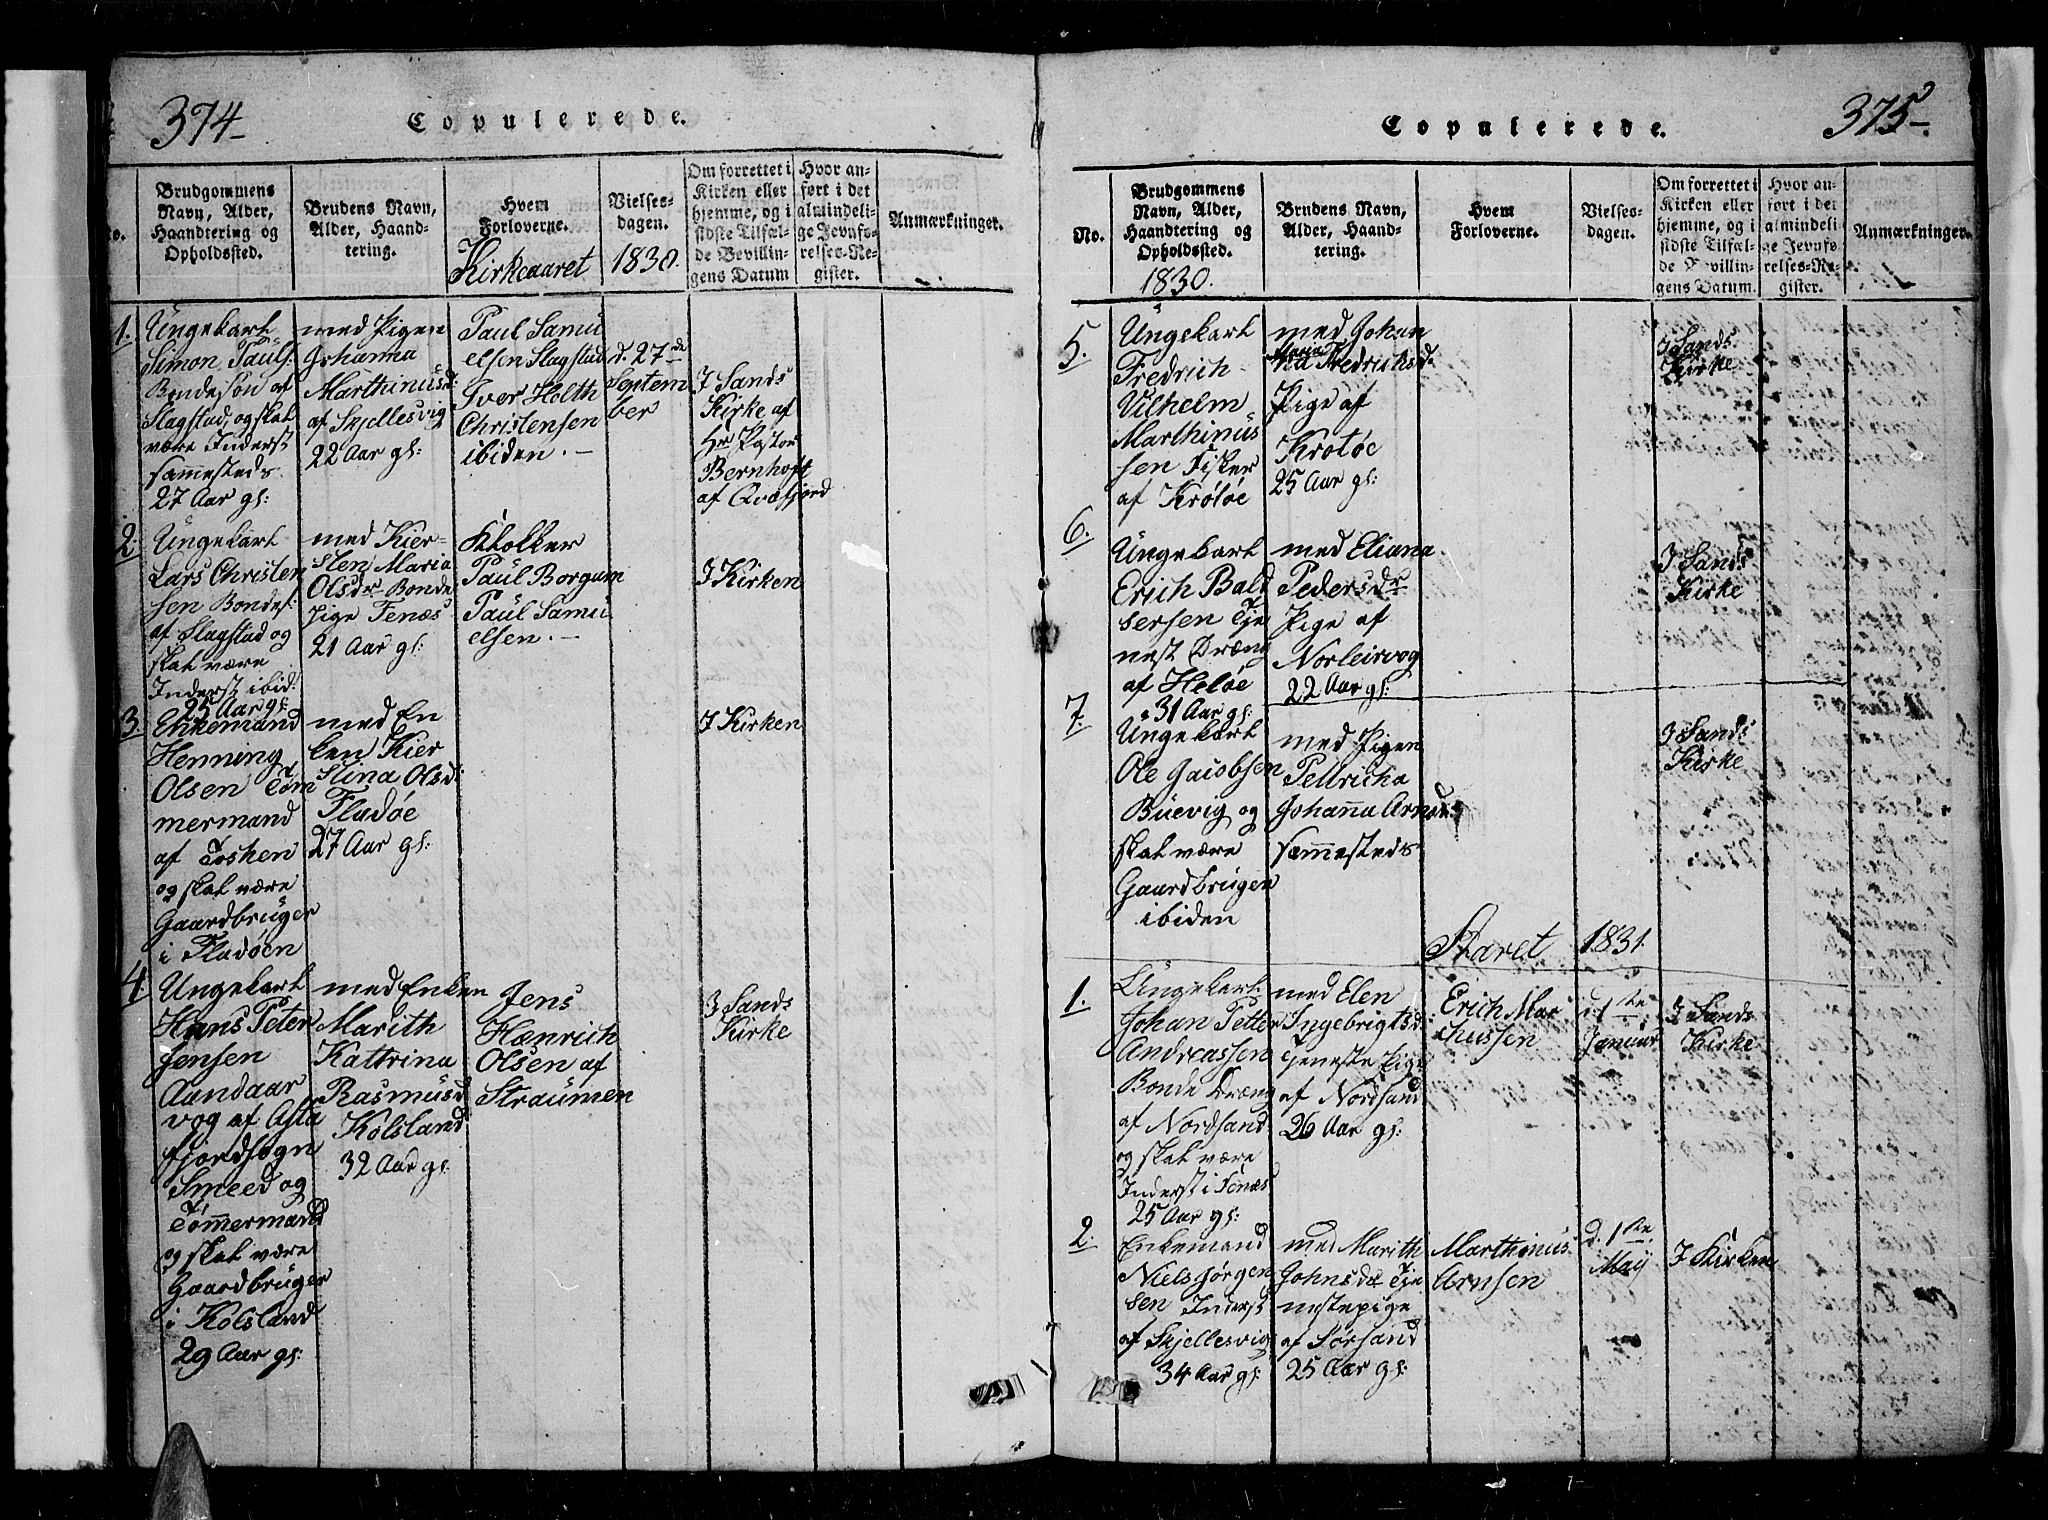 374
Copulerede.
No.
Brudgommens
Navn, Alder,
Haandtering og
Opholdssted.
Brudens Navn,
Alder, Haand-
tering.
Hvem
Forloverne.
Kirkeaaret
Vielses-
dagen.
1830.
Om forrettet i
Kirken eller
hjemme, og i
sidste Tilfæl-
de Bevillin-
gens Datum
Hvor an-
ført i det
almindeli-
ge Jevnfø-
relses-Re-
gister.
Anmærkninger.
1.
Ungekarl
Simon Pauls.
Bondesøn af
Slagstad, og skal
være Inderst
sammesteds
27 Aar gl:
med Pigen
Johanna
Marthinusd:
af Skjellesvig
22 Aar gl:
Paul Samu
elsen Slagstad
Iver Holth
Christensen
ibiden.
d. 27de
Septem
ber
I Sands
Kirke af
Hr Pastor
Bernhoft
af Qvæfjord
2.
Ungekarl
Lars Christen
sen Bondes:
af Slagstad og
skal være
Inderst ibid:
25 Aar gl:
med Kier-
sten Maria
Olsdr Bonde
Pige Fenæs
21 Aar gl:
Klokker
Paul Borgum
Paul Samu
elsen.
I Kirken
3.
Enkemand
Henning
Olsen Tøm
mermand
af Toshen
og skal være
Gaardbruger
i Fladøen
med En
ken Kier
stina Olsd:
Fladøe
27 Aar gl:
I Kirken
4.
Ungekarl
Hans Peter
Jensen
Aandaar
vog af Asta
fjordsogn
Smeed og
Tømmermand
og skal være
Gaardbruger
i Kolsland
29 Aar gl:
med Enken
Marith
Kattrina
Rasmusd
Kolsland
32 Aar gl:
Jens
Hænrich
Olsen af
Straumen
I Sands
Kirke
375
Copulerede.
No.
Brudgommens
Navn, Alder,
Haandtering og
Opholdssted.
1830.
Brudens Navn,
Alder, Haand-
tering.
Hvem
Forloverne.
Vielses-
dagen.
Om forrettet i
Kirken eller
hjemme, og i
sidste Tilfæl-
de Bevillin-
gens Datum.
Hvor an-
ført i det
almindeli-
ge Jevnfø-
relses-Re-
gister.
Anmærkninger.
5.
Ungekarl
Fredrich
Vilhelm
Marthinus
sen Fisker
af Krøtøe
med Johan
Maria
na Fredrichsd:
Pige af
Krotøe
25 Aar gl:
I Sands
Kirke
6.
Ungekarl
Erich Bald
sersen Tje
nest Dræng
af Heløe
31 Aar gl:
med Eliana
Pedersdr
Pige af
Norleirvog
22 Aar gl:
I Sands
Kirke
7.
Ungekarl
Ole Jacobsen
Buevig og
skal være
Gaardbrugen
ibiden
med Pigen
Pettricha
Johanna Arnsd:
sammesteds
I Sands
Kirke
Aaret 1831.
1.
Ungekarl
Johan Petter
Andreassen
Bonde Dræng
af Nordsand
og skal være
Inderst i Fenæs
25 Aar gl:
med Elen
Ingebrigtsd:
Tjeneste Pige
af Nordsand
26 Aar gl:
Erich Mar
chussen
d. 1te
Januar
I Sands
Kirke
2.
Enkemand
Niels Jørgen
sen Inderst
af Skjellesvig
34 Aar gl:
med Marith
Johnsdr Tje
nestepige
af Sørsand
25 Aar gl:
Marthinus
Arnsen
d. 1te
Maij
I Kirken